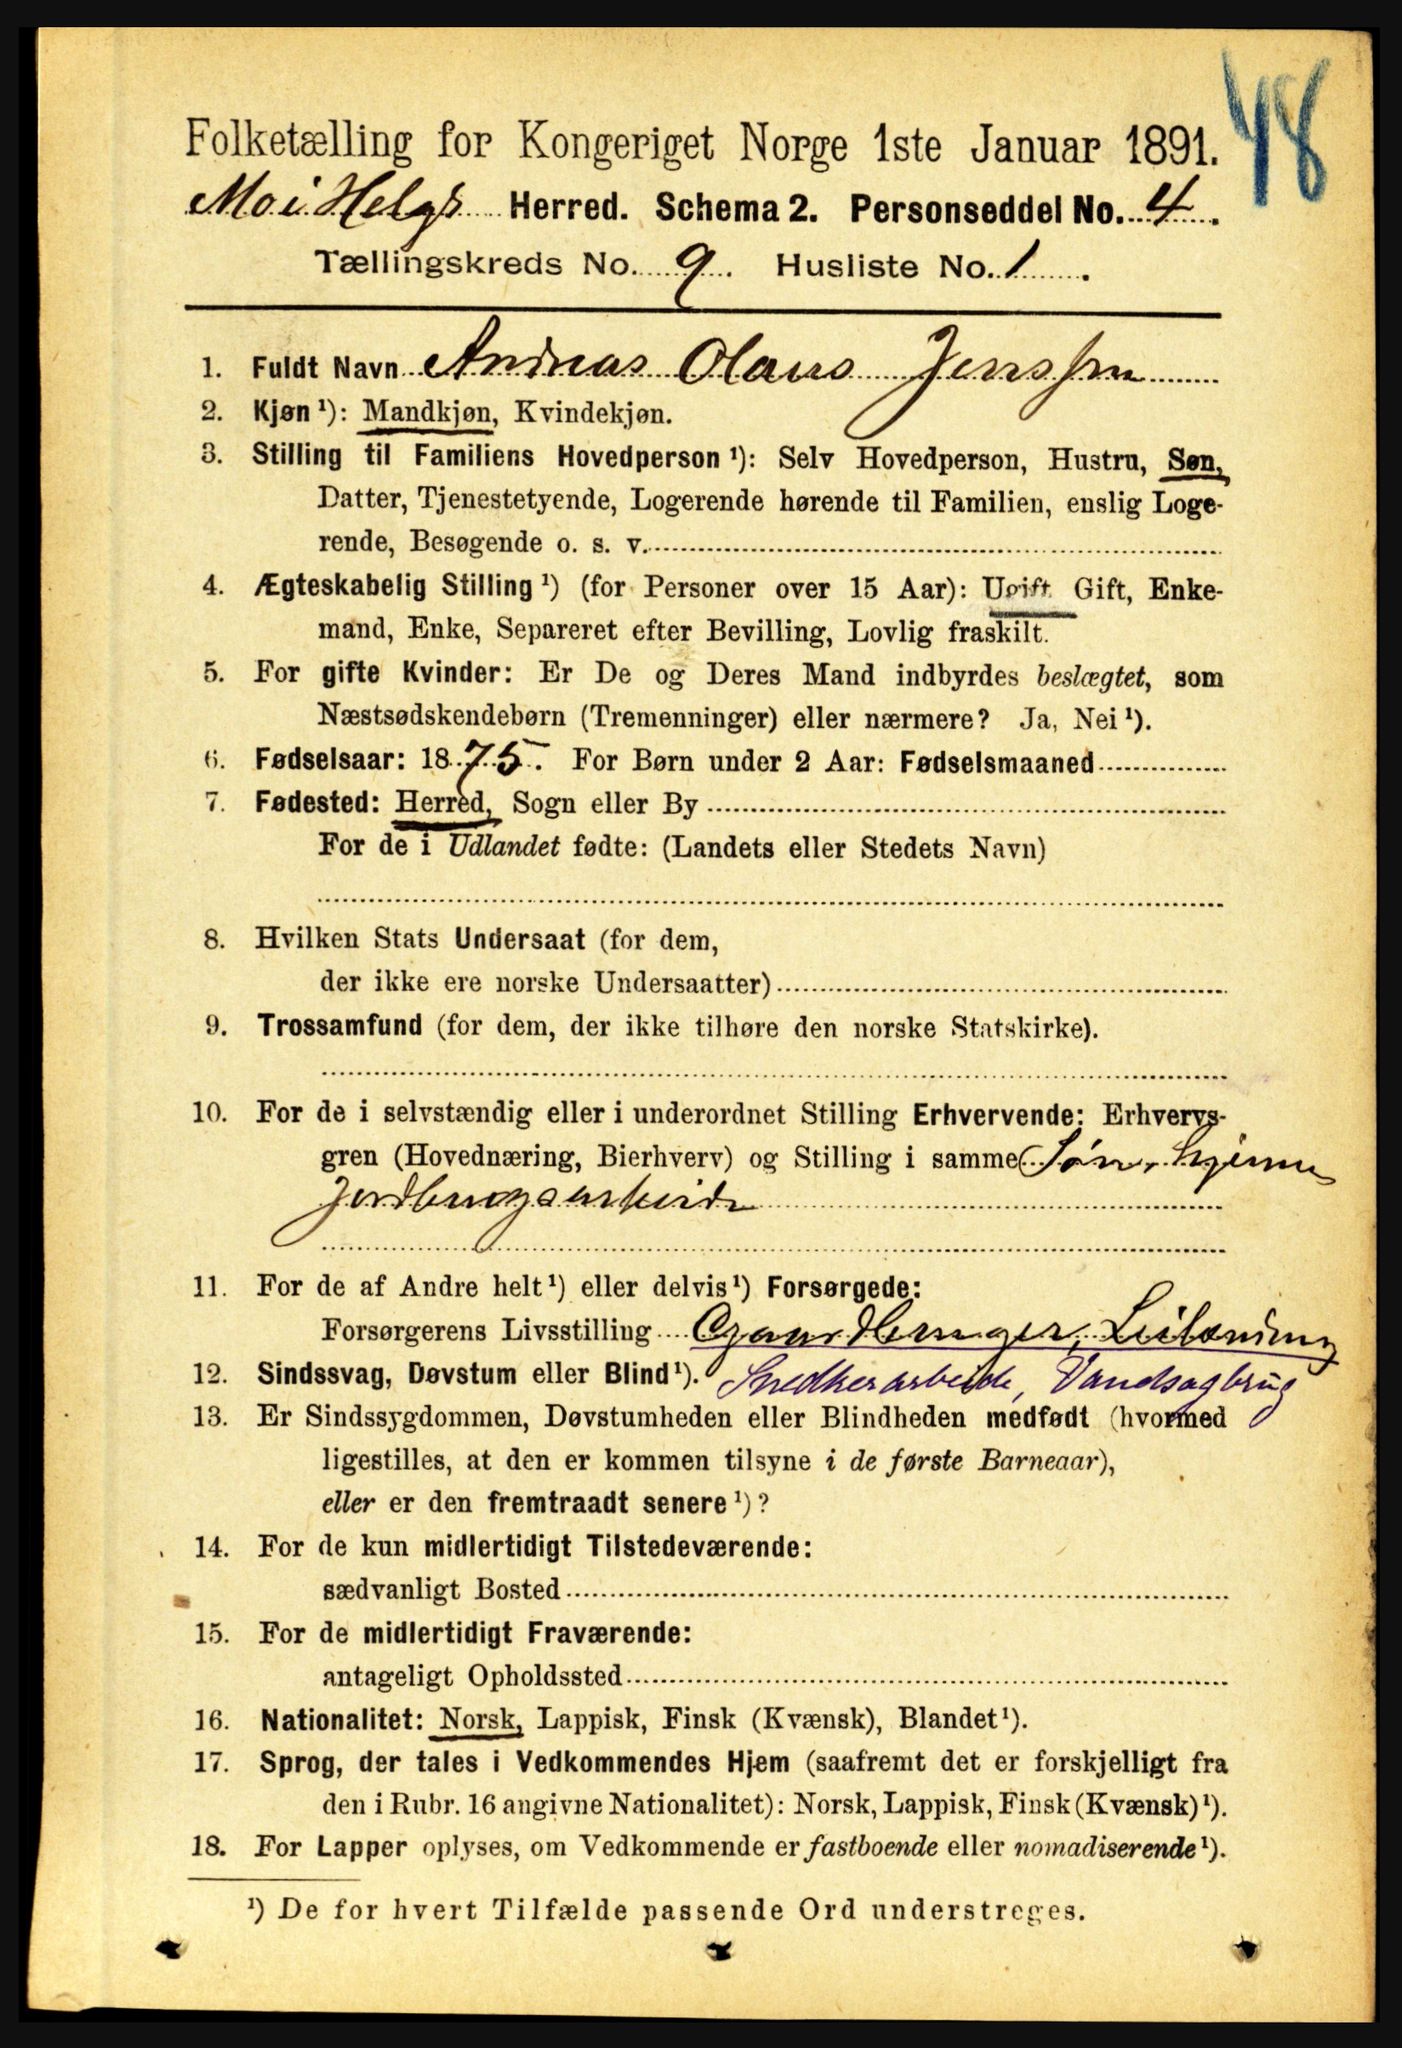 48
Folketælling for Kongeriget Norge 1ste Januar 1891.
Mo i Helgl Herred. Schema 2. Personseddel No. 4.
Tællingskreds No. 9. Husliste No. 1.
1. Fuldt Navn Andreas Olaus Jenssen
2. Kjøn¹): Mandkjøn, Kvindekjøn.
3. Stilling til Familiens Hovedperson¹): Selv Hovedperson, Hustru, Søn,
Datter, Tjenestetyende, Logerende hørende til Familien, enslig Loge-
rende, Besøgende o. s. v.
4. Ægteskabelig Stilling¹) (for Personer over 15 Aar): Ugift, Gift, Enke-
mand, Enke, Separeret efter Bevilling, Lovlig fraskilt.
5. For gifte Kvinder: Er De og Deres Mand indbyrdes beslægtet, som
Næstsødskendebørn (Tremenninger) eller nærmere? Ja, Nei¹).
6. Fødselsaar: 1875. For Børn under 2 Aar: Fødselsmaaned
7. Fødested: Herred, Sogn eller By
For de i Udlandet fødte: (Landets eller Stedets Navn)
8. Hvilken Stats Undersaat (for dem,
der ikke ere norske Undersaatter)
9. Trossamfund (for dem, der ikke tilhøre den norske Statskirke).
10. For de i selvstændig eller i underordnet Stilling Erhvervende: Erhvervs-
gren (Hovednæring, Bierhverv) og Stilling i samme Søn, hjemme
Jordbrugsarbeide
11. For de af Andre helt¹) eller delvis¹) Forsørgede:
Forsørgerens Livsstilling Gaardbruger, Leilænding
12. Sindssvag, Døvstum eller Blind¹). Snedkerarbeide, Vandsagbrug
13. Er Sindssygdommen, Døvstumheden eller Blindheden medfødt (hvormed
ligestilles, at den er kommen tilsyne i de første Barneaar),
eller er den fremtraadt senere¹)?
14. For de kun midlertidigt Tilstedeværende:
sædvanligt Bosted
15. For de midlertidigt Fraværende:
antageligt Opholdssted
16. Nationalitet: Norsk, Lappisk, Finsk (Kvænsk), Blandet¹).
17. Sprog, der tales i Vedkommendes Hjem (saafremt det er forskjelligt fra
den i Rubr. 16 angivne Nationalitet): Norsk, Lappisk, Finsk (Kvænsk)¹).
18. For Lapper oplyses, om Vedkommende er fastboende eller nomadiserende¹).
¹) De for hvert Tilfælde passende Ord understreges.